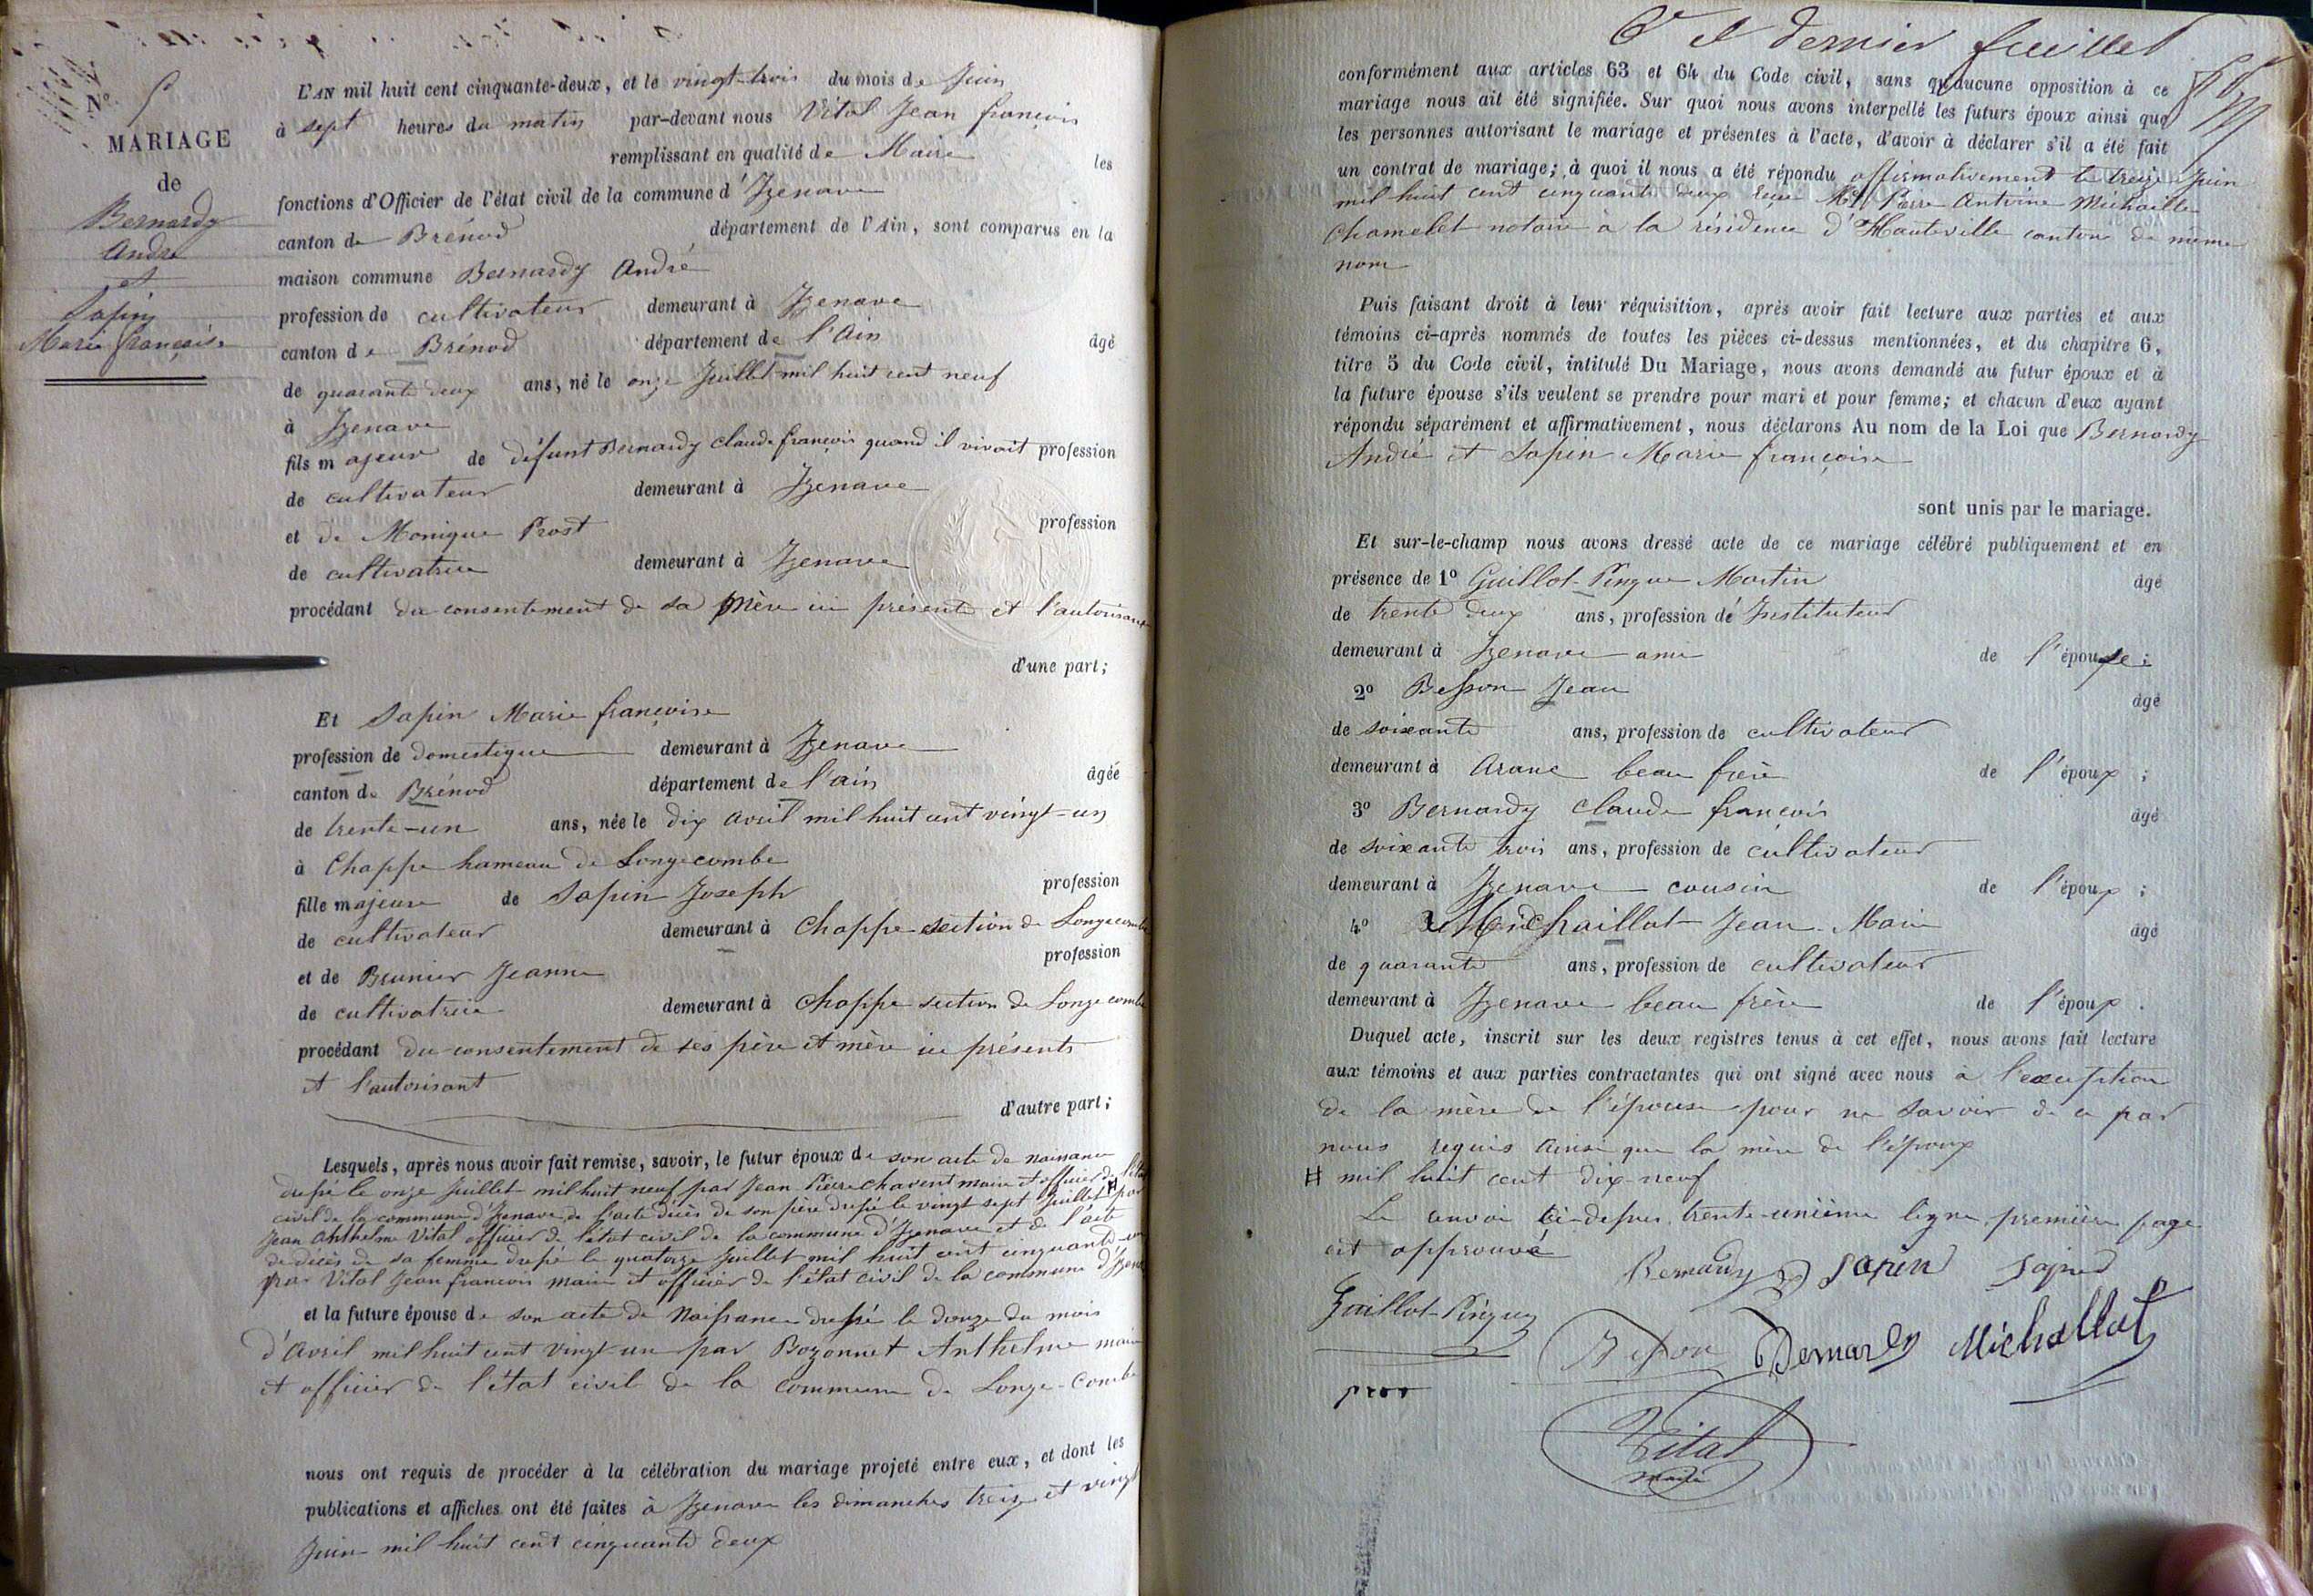 N° 5
MARIAGE
de
Bernardy
André
et
Sapin
Marie françoise
L'AN mil huit cent cinquante-deux, et le vingt-trois du mois de Juin
à sept heures du matin par-devant nous Vital Jean françois
remplissant en qualité de Maire les
fonctions d'Officier de l'état civil de la commune d'Izenave
canton de Brénod département de l'Ain, sont comparus en la
maison commune Bernardy André
profession de cultivateur demeurant à Izenave
canton de Brénod département de l'Ain âgé
de quarante deux ans, né le onze Juillet mil huit cent neuf
à Izenave
fils majeur de défunt Bernardy Claude françois quand il vivait profession
de cultivateur demeurant à Izenave
et de Monique Prost profession
de cultivatrice demeurant à Izenave
procédant du consentement de sa mère ici présente et l'autorisant
d'une part;
Et Sapin Marie françoise
profession de domestique demeurant à Izenave
canton de Brénod département de l'ain âgée
de trente-un ans, née le dix avril mil huit cent vingt-un
à Chappe hameau de Longecombe
fille majeure de Sapin Joseph profession
de cultivateur demeurant à Chappe section de Longecombe
et de Brunier Jeanne profession
de cultivatrice demeurant à Chappe section de Longecombe
procédant du consentement de ses père et mère ici présents
et l'autorisant
d'autre part;
Lesquels, après nous avoir fait remise, savoir, le futur époux de son acte de naissance
dressé le onze Juillet mil huit neuf par Jean Pierre Chavent maire et officier de l'état
civil de la commune d'Izenave, de l'acte décès de son père dressé le vingt sept Juillet # par
Jean Anthelme Vital officier de l'état civil de la commune d'Izenave et de l'acte
de décès de sa femme dressé le quatorze Juillet mil huit cent cinquante-un
par Vital Jean françois maire et officier de l'état civil de la commune d'Izenave
et la future épouse de son acte de Naissance dressé le douze du mois
d'Avril mil huit cent vingt-un par Bozonnet Anthelme maire
et officier de l'état civil de la commune de Longe-Combe
nous ont requis de procéder à la célébration du mariage projeté entre eux, et dont les
publications et affiches ont été faites à Izenave les dimanches treize et vingt
Juin mil huit cent cinquante deux
6e et dernier feuillet
conformément aux articles 63 et 64 du Code civil, sans qu'aucune opposition à ce
mariage nous ait été signifiée. Sur quoi nous avons interpellé les futurs époux ainsi que
les personnes autorisant le mariage et présentes à l'acte, d'avoir à déclarer s'il a été fait
un contrat de mariage; à quoi il nous a été répondu affirmativement le treize Juin
mil huit cent cinquante deux Me Pierre Antoine Michaille
Chamelet notaire à la résidence d'Hauteville canton de même
nom
Puis faisant droit à leur réquisition, après avoir fait lecture aux parties et aux
témoins ci-après nommés de toutes les pièces ci-dessus mentionnées, et du chapitre 6,
titre 5 du Code civil, intitulé Du Mariage, nous avons demandé au futur époux et à
la future épouse s'ils veulent se prendre pour mari et pour femme; et chacun d'eux ayant
répondu séparément et affirmativement, nous déclarons Au nom de la Loi que Bernardy
André et Sapin Marie françoise
sont unis par le mariage.
Et sur-le-champ nous avons dressé acte de ce mariage célébré publiquement et en
présence de 1° Guillot-Pingue Martin âgé
de trente deux ans, profession d'Instituteur
demeurant à Izenave ami de l'épouse;
2° Besson Jean âgé
de soixante ans, profession de cultivateur
demeurant à Aranc beau frère de l'époux;
3° Bernardy Claude françois âgé
de soixante trois ans, profession de cultivateur
demeurant à Izenave cousin de l'époux;
4° Michaillat Jean-Marie âgé
de quarante ans, profession de cultivateur
demeurant à Izenave beau frère de l'époux.
Duquel acte, inscrit sur les deux registres tenus à cet effet, nous avons fait lecture
aux témoins et aux parties contractantes qui ont signé avec nous à l'exception
de la mère de l'épouse pour ne savoir de ce par
nous requis ainsi que la mère de l'époux
# mil huit cent dix-neuf
Le renvoi ci-dessus trente-unième ligne première page
est approuvé
Bernardy Sapin Sapin
Guillot-Pingue
Besson Bernardy Michallat
Vital
maire